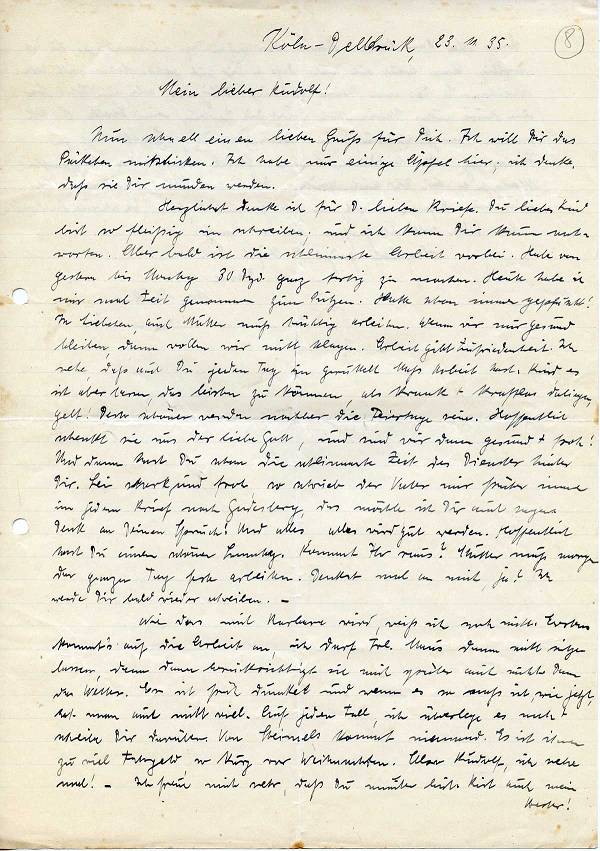 Köln-Dellbrück, 23. 11. 35.
8
Mein lieber Rudolf!
Nun schnell einen lieben Gruß für Dich. Ich will Dir das
Päckchen mitschicken. Ich habe nur einige Äpfel hier, ich denke,
daß sie Dir munden werden.
Herzlichst danke ich für d. lieben Briefe. Du liebes Kind
bist so fleißig im schreiben, und ich kann Dir kaum ant-
worten. Aber bald ist die schlimmste Arbeit vorbei. Habe von
gestern bis 30 Dzd. ganz fertig zu machen. Heute habe ich
mir mal Zeit genommen zum Putzen.
Ja Liebchen, auch Mutter muß tüchtig arbeiten. Wenn wir nur gesund
bleiben, dann wollen wir nicht klagen. Arbeit gibt Zufriedenheit. Ich
sehe, daß auch Du jeden Tag ein gerüttelt Maß Arbeit hast. Kind es
ist aber schön, das leisten zu können, als krank + kraftlos daliegen,
gelt! Desto schöner werden nachher die Feiertage sein. Hoffentlich
schenkt sie uns der liebe Gott, und sind wir dann gesund + froh!
Und dann hast Du schon die schlimmste Zeit des Dienstes hinter
Dir. Sei stark und froh so schrieb der Vater mir früher immer
in jedem Brief nach Godesberg, das möchte ich Dir auch sagen
Denk an Deinen Spruch! Und alles alles wird gut werden. Hoffentlich
hast Du einen schönen Sonntag. Kommt Ihr raus? Mutter muß morgen
den ganzen Tag feste arbeiten. Denkst mal an mich, ja? Ich
werde Dir bald wieder schreiben. –
Wie das mit Barbara wird, weiß ich noch nicht. Erstens
kommt's auf die Arbeit an, ich darf Frl. Maus dann nicht sitzen
lassen, denn dann berücksichtigt sie mich später auch nicht. Dann
das Wetter. Es ist früh dunkel und wenn es so naß ist, wie jetzt,
hat man auch nicht viel. Auf jeden Fall, ich überlege es noch +
schreibe Dir darüber. Von Steimels kommt niemand. Es ist ihnen
zu viel Fahrgeld so kurz vor Weihnachten. Also Rudolf, ich sehe
mal! – Ich freue mich sehr, daß Du munter bist. Bist auch mein
Bester!